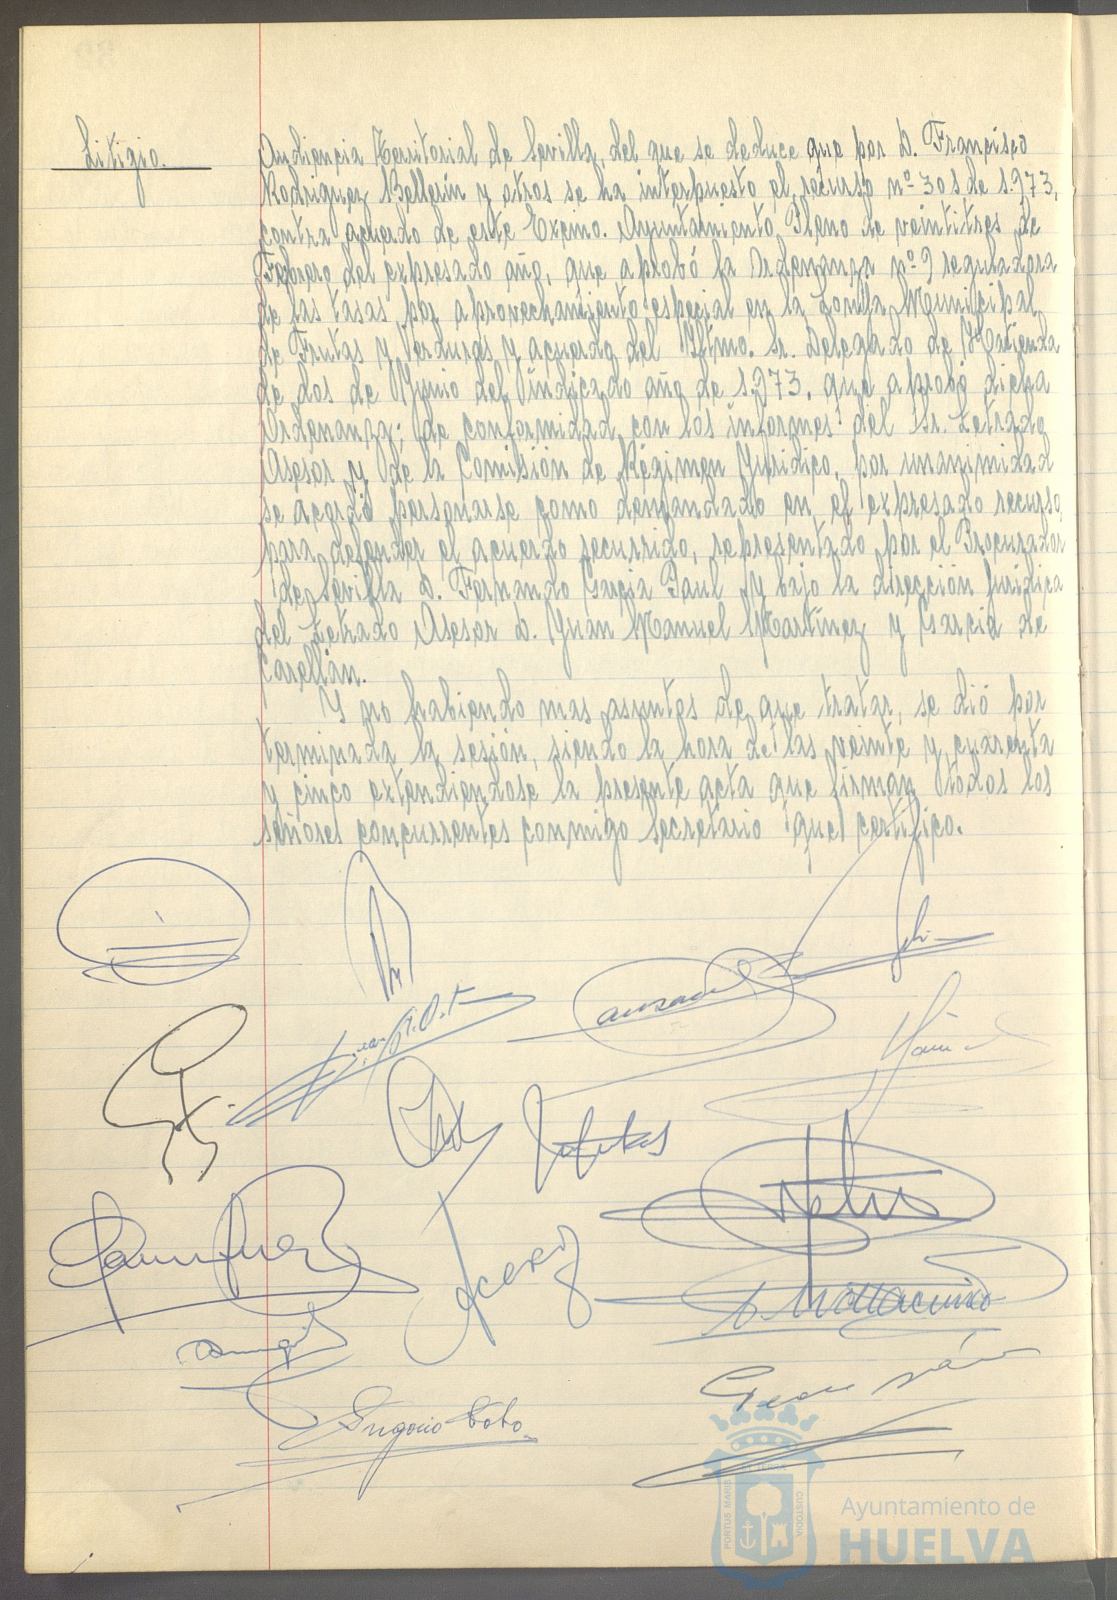 Litigio.
Audiencia Territorial de Sevilla, del que se deduce que por D. Francisco
Rodriguez Bellerín y otros se ha interpuesto el recurso nº 305 de 1.973,
contra acuerdo de este Excmo. Ayuntamiento Pleno de veintitres de
Febrero del expresado año, que aprobó la Ordenanza nº 9 reguladora
de las tasas por aprovechamiento especial en la Lonja Municipal
de Frutas y Verduras y acuerdo del Iltmo. Sr. Delegado de Hacienda
de dos de Junio del indicado año de 1.973, que aprobó dicha
Ordenanza; de conformidad con los informes del Sr. Letrado
Asesor y de la Comisión de Régimen Jurídico, por unanimidad
se acordó personarse como demandado en el expresado recurso,
para defender el acuerdo recurrido, representado por el Procurador
de Sevilla D. Fernando García Paul y bajo la dirección jurídica
del Letrado Asesor D. Juan Manuel Martínez y García de
Carellán.
Y no habiendo mas asuntos de que tratar, se dió por
terminada la sesión, siendo la hora de las veinte y cuarenta
y cinco extendiendose la presente acta que firman todos los
señores concurrentes conmigo secretario que certifico.
Gregorio Cobo.
PORTUS MARIS
CUSTODIA
Ayuntamiento de
HUELVA